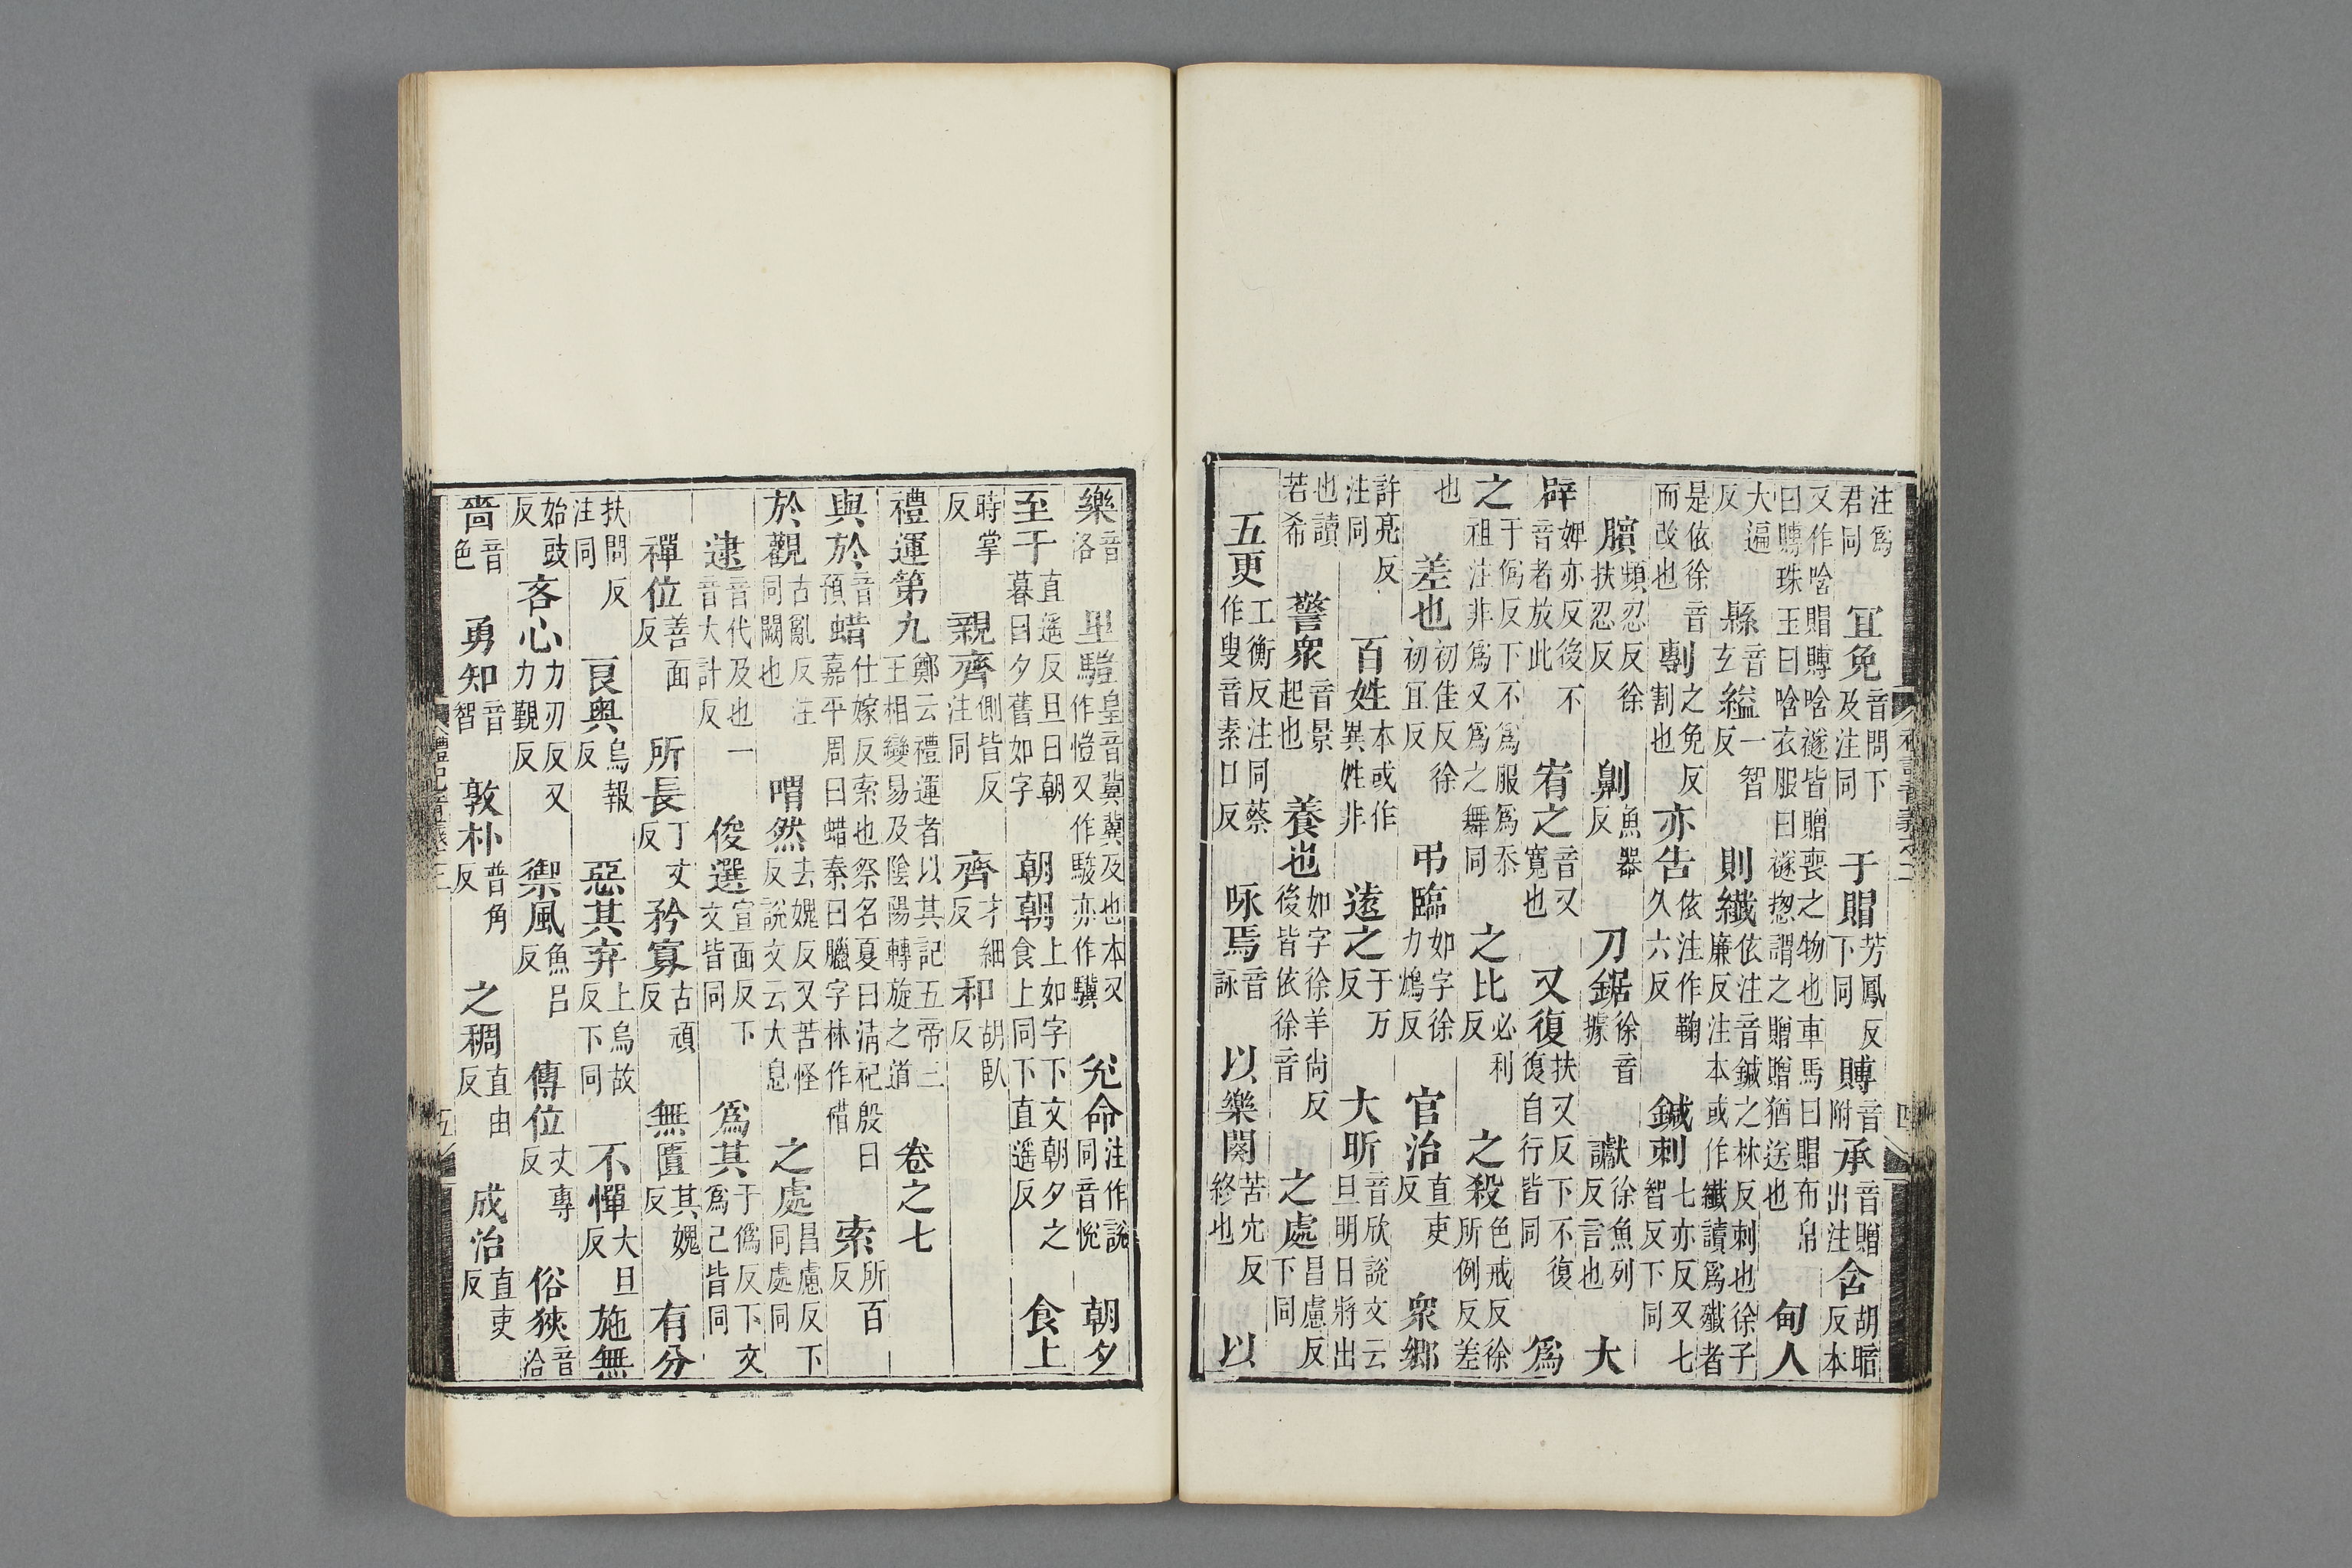 注爲君同　冝免音問下及注同　于賵芳鳳反下同　賻音附　承音贈出注　含胡暗反本
又作唅賵賻唅禭皆贈喪之物也車馬曰賵布帛曰賻珠玉曰唅衣服曰禭揔謂之贈贈猶送也　甸人
大遍反　縣音玄　縊一智反　則纖依注音鍼之林反刺也徐子廉反注本或作纎讀爲殱者
是依徐音而改也　剸之免反割也　亦告依注作鞠久六反　鍼刺七亦反又七智反下同
臏頻忍反徐扶忍反　劓魚器反　刀鋸徐音據　讞徐魚列反言也　大
辟婢亦反後不音者放此　宥之音又寬也　又復扶又反下不復復自行皆同　爲
之于僞反下不爲服爲忝祖注非爲又爲之舞同　之比必利反　之殺色戒反徐所例反差
也　差也初佳反徐初宜反　弔臨如字徐力鴆反　官治直吏反　衆鄉
許亮反注同　百姓本或作異姓非　逺之于万反　大昕音欣說文云旦明日將出
也讀苦希　警衆音景起也　養也如字徐羊尚反後皆依徐音　之處昌慮反下同
五更工衡反注同蔡作叟音素口反　咏焉音詠　以樂闋苦宂反終也　以
禮記音義之二　四
樂音洛　㽬䮗皇音冀冀及也本又作愷又作駿亦作驥　兊命注作說同音悅　朝夕
至于直遥反旦曰朝暮曰夕舊如字　朝朝上如字下下文朝夕之食上同下直遥反　食上
時掌反　親齊側皆反注同　齊才細反　和胡臥反
禮運第九鄭云禮運者以其記五帝三王相變易及陰陽轉旋之道　卷之七
與於音預　蜡仕嫁反索也祭名夏曰清祀殷曰嘉平周曰蜡秦曰臘字林作䄍　索所百反
於觀古亂反注同闕也　喟然去媿反又苦怪反說文云大息　之處昌慮反下同處同
逮音代及也一音大計反　俊選宣面反下文皆同　爲其于僞反下文爲己皆同
禪位善面反　所長丁丈反　矜寡古頑反　無匱其媿反　有分
扶問反注同　良奥烏報反　惡其弃上烏故反下同　不憚大旦反　施無
始豉反　吝心力刃反又力覲反　禦風魚呂反　傳位丈專反　俗狹音洽
嗇音色　勇知音智　敦朴普角反　之稠直由反　成治直吏反
禮記音義之二　五